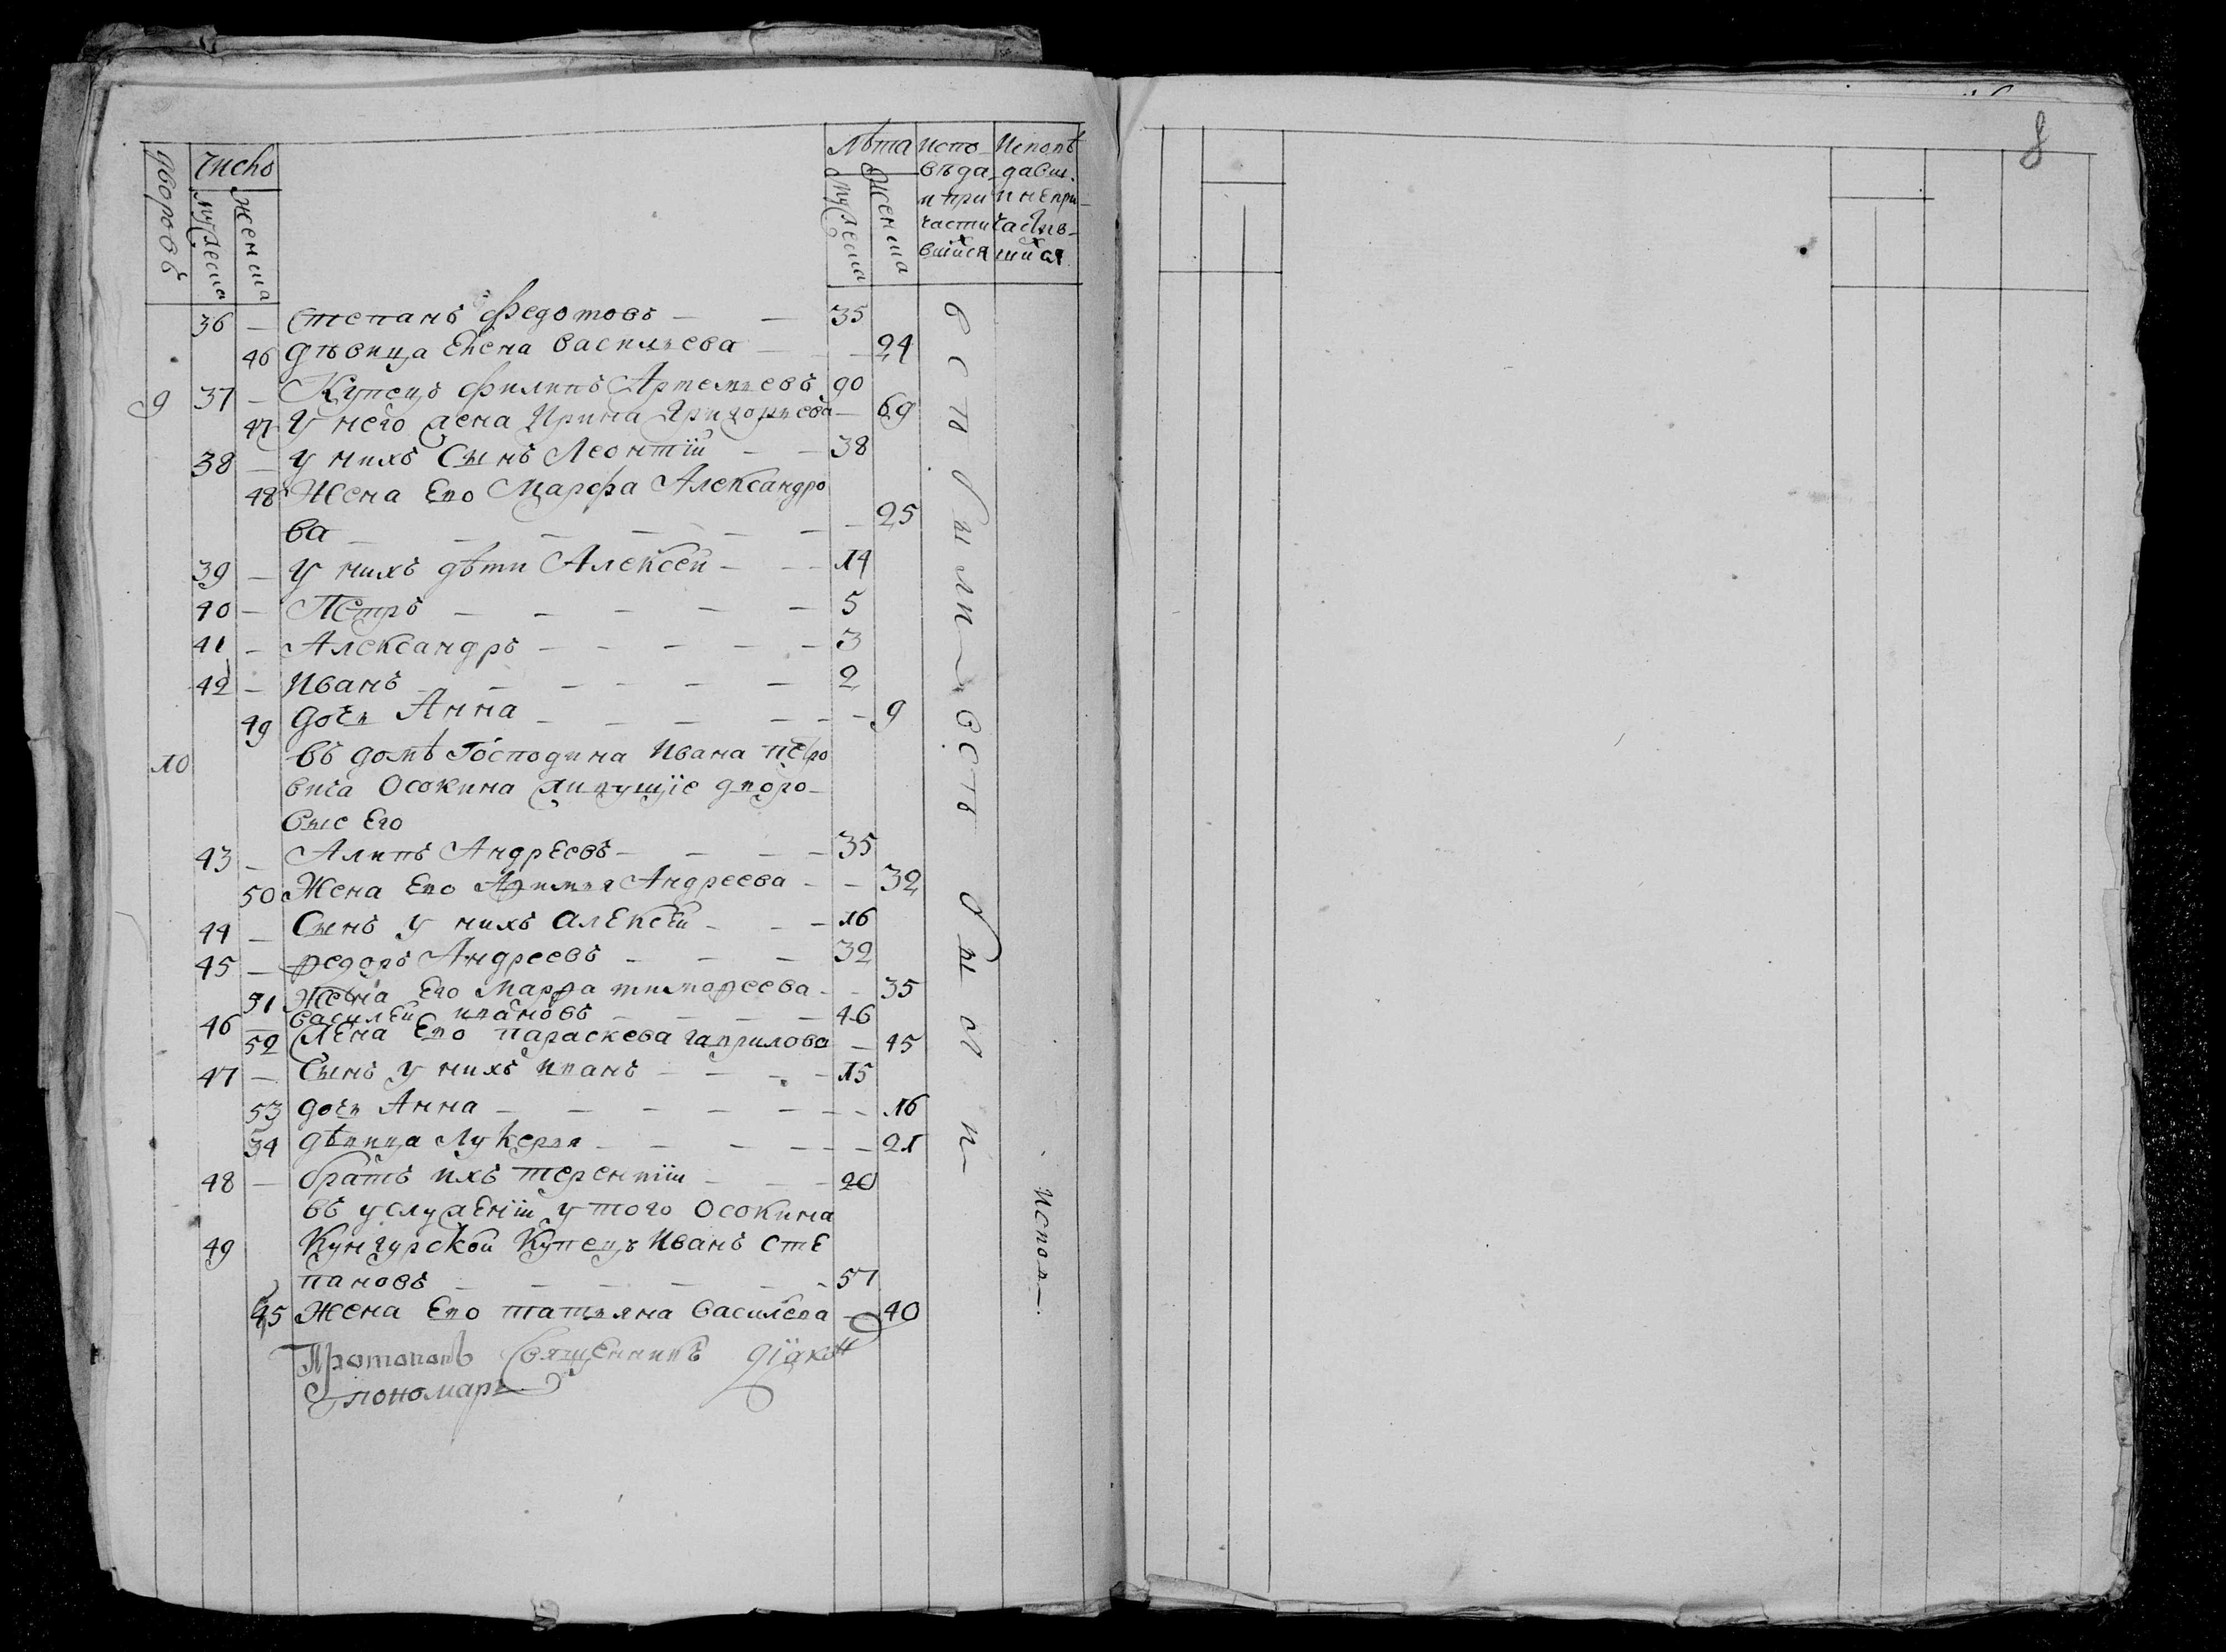 дворовъ число мужеска женска лѣта мужеска женска испо вѣда и при части вшихся исповѣ давш. и не при части в шихся
8
36 — степанъ федотовъ — — 35
46 дѣвица Елена васильева — — 24
9 37 — Купецъ филипъ Артемьевъ 90
47 У него жена Ирина Григорьева — 69
38 — у нихъ Сынъ Леонтiй — — 38
48 Жена Ево Марфа Александро
ва — — — — — — — 25
39 — У нихъ дѣти Алексей — — — 14
40 — Петръ — — — — — 5
41 — Александръ — — — — — 3
42 — Иванъ — — — — — 2
49 дочь Анна — — — — — — 9
10 въ домѣ Господина Ивана петро
вича Осокина живущiе дворо
вые Его
43 — Алипъ Андреевъ — — — — 35
50 Жена Ево Андреева — — 32
44 — Сынъ у нихъ алексѣй — — — 16
45 — федоръ Андреевъ — — — 32
51 Жена Его Марфа тимофеева — — 35
46 — василей ивановъ — — — — 46
52 Жена Ево параскева гаврилова — 45
47 — Сынъ у нихъ иванъ — — — — 15
53 дочь Анна — — — — — — — 16
54 дѣвица Лукерья — — — — — — 21
48 — братъ ихъ терентiй — — — 20
въ услуженiи у того Осокина
49 Кунгурской Купецъ Иванъ сте
пановъ — — — — — — 57
55 Жена Ево татьяна василева — 40
Протопопъ Священникъ дiаконъ
пономарь
в с т ь б ы л и
в с т ь б ы л и
Испов—